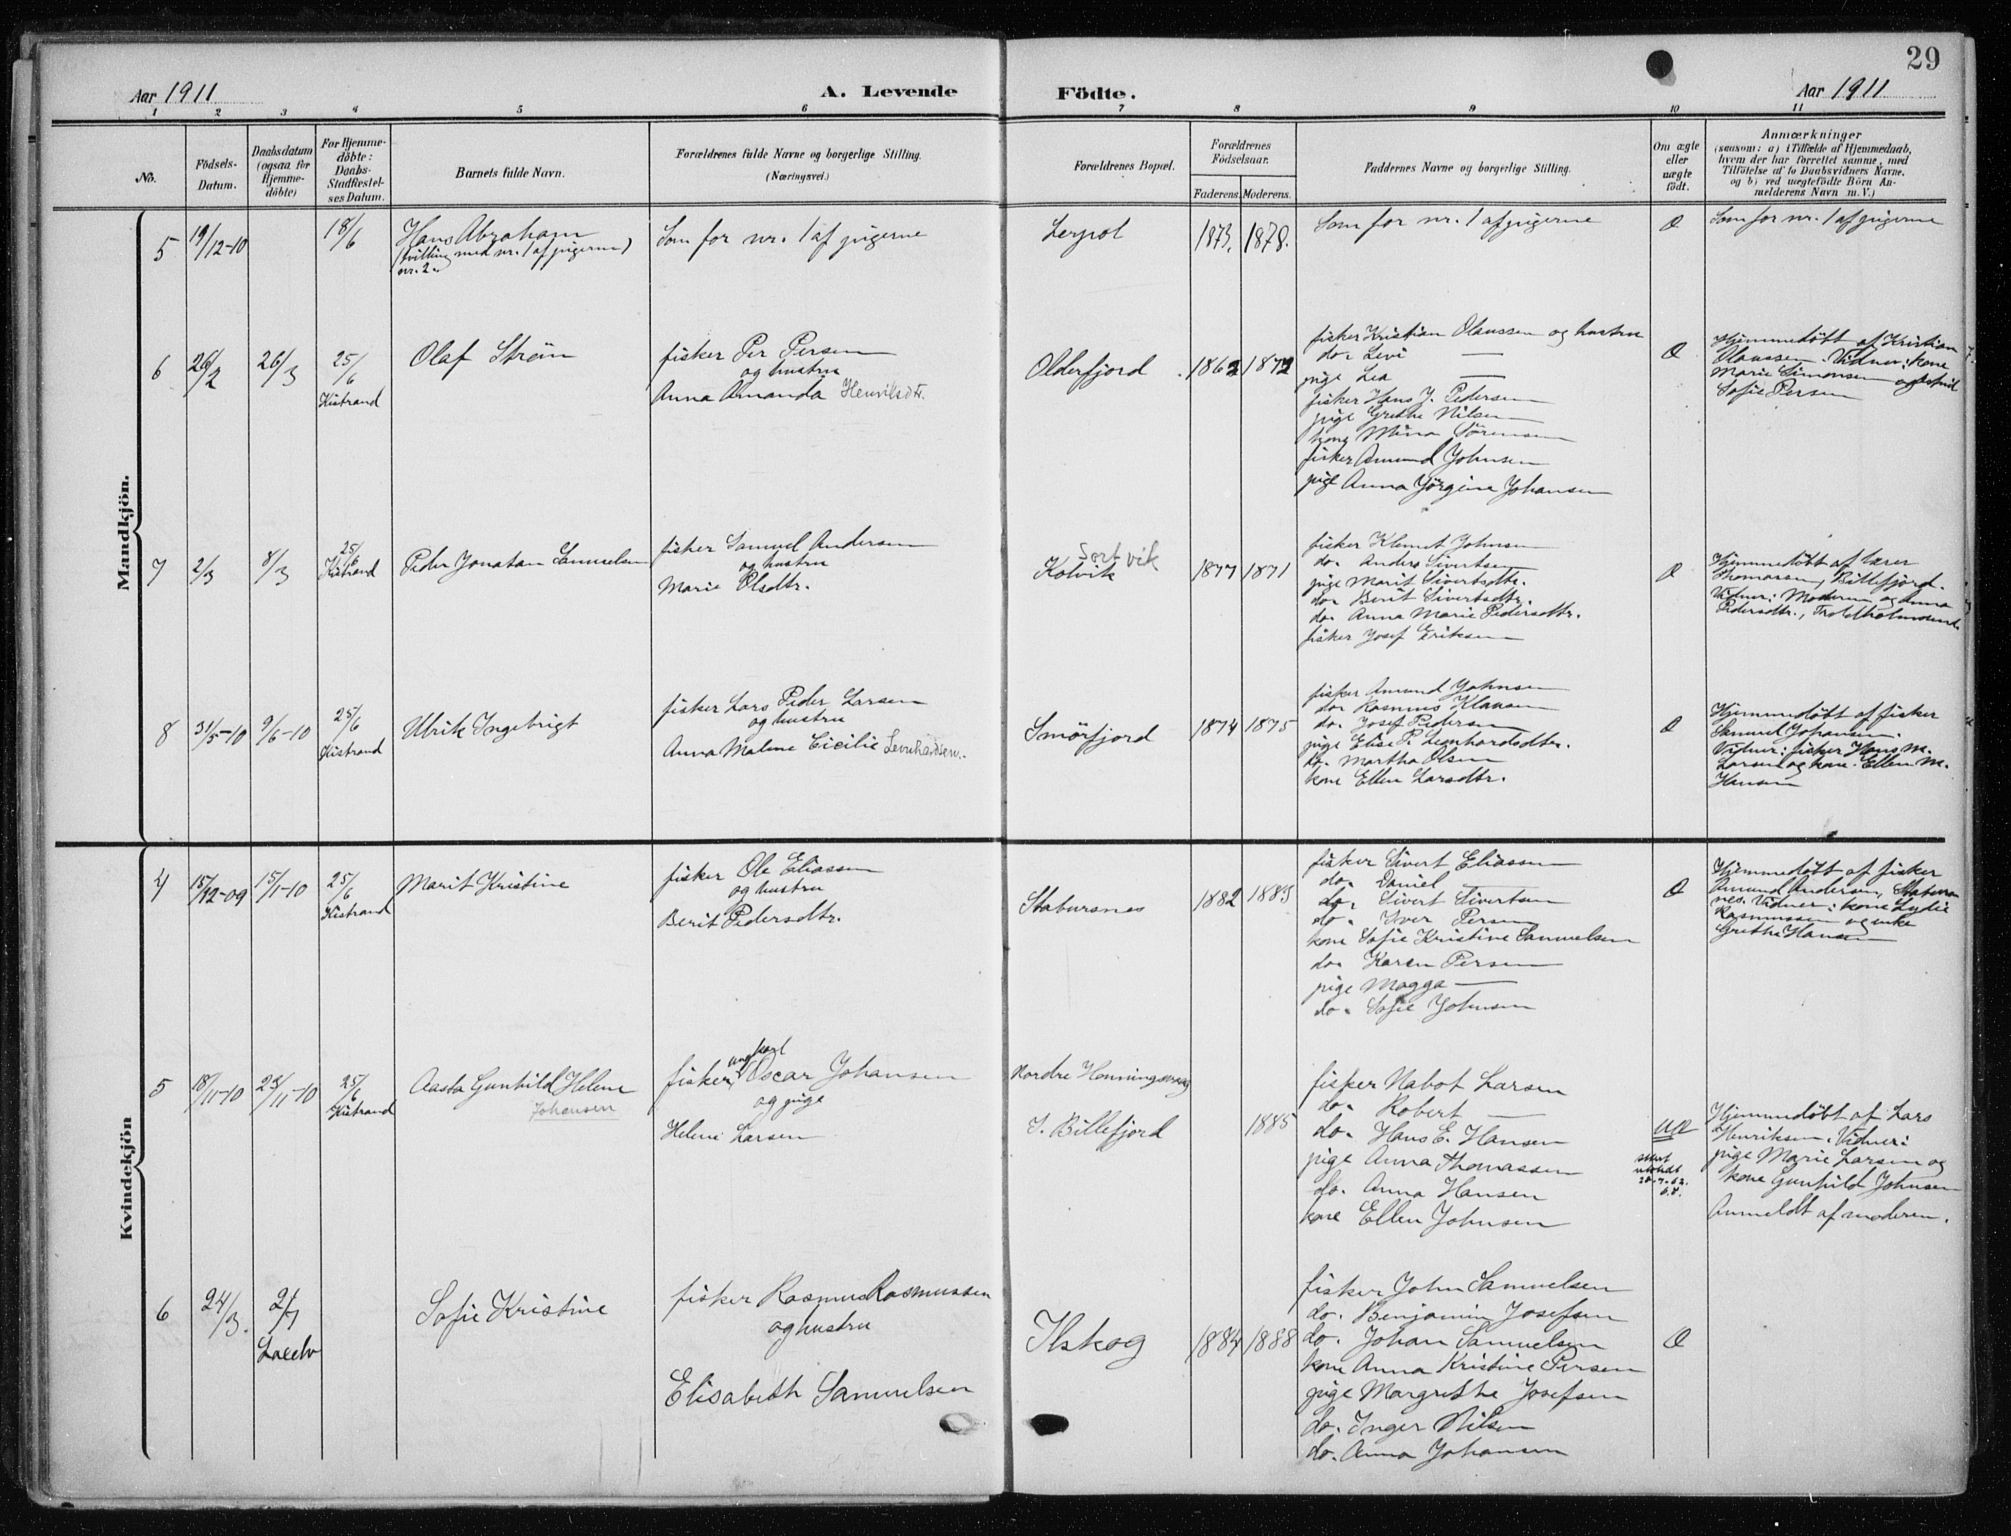 29
Aar 1911
A. Levende Födte.
Aar 1911
1 2 3 4 5 6 7 8 9 10 11
No.
Födsels-
Datum.
Daabsdatum
(ogsaa for
Hjemme-
döbte)
For Hjemme-
döbte:
Daabs-
Stadfæstel-
ses Datum.
Barnets fulde Navn.
Forældrenes fulde Navne og borgerlige Stilling.
(Næringsvei.)
Forældrenes Bopæl.
Forældrenes
Födselsaar.
Faderens. Moderens.
Faddernes Navne og borgerlige Stilling.
Om ægte
eller
uægte
födt.
Anmærkninger
(saasom: a) i Tilfælde af Hjemmedaab,
hvem der har forrettet samme, med
Tilföielse af to Daabsvidners Navne,
og b) ved uægtefödte Börn An-
melderens Navn m. V.)
Mandkjön.
5
19/12-10
18/6
Hans Abraham
(tvilling med nr. 1 af pigerne)
nr. 2.
Som for nr. 1 af pigerne
Lerpol
1873. 1878.
Som for nr. 1 af pigerne
Æ
Som for nr. 1 af pigerne
6
26/2
26/3
25/6
Kistrand
Olaf Strøm
fisker Per Persen
og hustru
Anna Amanda Henriksdtr.
Olderfjord
1862 1872
fisker Kristian Olaussen og hustru
do. Levi —
pige Lea —
fisker Hans J. Pedersen
pige Grethe Nilsen
kone Mina Sørensen
fisker Amund Johnsen
pige Anna Jørgine Johansen
Æ
Hjemmedøbt af Kristian
Olaussen. Vidner: kone
Marie Simonsen og
Sofie Persen
7
2/3
8/3
25/6
Kistrand
Peder Jonatan Samuelsen
fisker Samuel Andersen
og hustru
Marie Olsdtr.
Sortvik
Kolvik
1877 1871
fisker Klemet Johnsen
do. Anders Sivertsen
pige Marit Sivertsdtr.
do. Berit Sivertsdtr.
do. Anna Marie Pedersdtr.
fisker Josef Eriksen
Æ
Hjemmedøbt af lærer
Thomassen, Billefjord.
Vidner: Moderen og Anna
Pedersdtr., Troldholmsund.
8
31/5-10
9/6-10
25/6
Kistrand
Ulrik Ingebrigt
fisker Lars Peder Larsen
og hustru
Anna Malene Cicilie Leonhardsen.
Smørfjord
1874 1875
fisker Amund Johnsen
do. Rasmus Klausen
do. Josef Pedersen
pige Elise P. Leonhardsdtr.
do. Martha Olsen
kone Ellen Larsdtr.
Æ
Hjemmedøbt af fisker
Samuel Johansen.
Vidner: fisker Hans M.
Larsen og kone Ellen M.
Hansen
Kvindekjön
4
15/12-09
15/1-10
25/6
Kistrand
Marit Kristine
fisker Ole Eliassen
og hustru
Berit Pedersdtr.
Stabursnes
1882 1885
fisker Sivert Eliassen
do. Daniel —
do. Sivert Sivertsen
do. Iver Persen
kone Sofie Kristine Samuelsen
do. Karen Persen
pige Magga —
do. Sofie Johnsen
Æ
Hjemmedøbt af fisker
Amund Andersen, Stabur
nes. Vidner: kone Lydie
Rasmussen og enke
Grethe Hansen
5
18/11-10
23/11-10
25/6
Kistrand
Aasta Gunhild Helene
Johansen
ungkarl
fisker Oscar Johansen
og pige
Helene Larsen
Nordre Honningsvaag
I. Billefjord
1885
fisker Nabot Larsen
do. Robert —
do. Hans E. Hansen
pige Anna Thomassen
do. Anna Hansen
kone Ellen Johnsen
UÆ
attest
utstedt
Hjemmedøbt af Lars
Henriksen. Vidner:
pige Marie Larsen og
kone Gunhild Johnsen
Anmeldt af moderen.
6
24/3.
2/7
Laxelv
Sofie Kristine
fisker Rasmus Rasmussen
og hustru
Elisabeth Samuelsen
Ilskog
1884 1888
fisker John Samuelsen
do. Benjamin Josefsen
do. Johan Samuelsen
kone Anna Kristine Persen
pige Margrethe Josefsen
do. Inger Nilsen
do. Anna Johansen
Æ